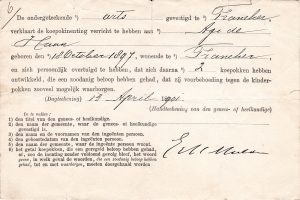 De ondergeteekende ¹) arts gevestigd te ²) Franeker
verklaart de koepokinenting verricht te hebben aan ³) Age de
Haan
geboren den ⁴) 18 October 1897, wonende te ⁵) Franeker
en zich persoonlijk overtuigd te hebben, dat zich daarna ⁶) 2 koepokken hebben
ontwikkeld, die een zoodanig beloop hebben gehad, dat zij voorbehoeding tegen de kinder-
pokken zooveel mogelijk waarborgen.
(Dagteekening) 13 April 1901.
(Handteekening van den genees- of heelkundige)
In te vullen:
1) den titel van den genees- of heelkundige.
2) den naam der gemeente, waar de genees- of heelkundige
gevestigd is.
3) den naam en de voornamen van den ingeënten persoon.
4) den geboortedatum van den ingeënten persoon.
5) den naam der gemeente, waar de ingeënte persoon woont.
6) het getal koepokken, die een geregeld beloop hebben gehad,
of, zoo de inenting zonder voldoend gevolg bleef, het woord
geene, in welk geval de woorden, die een zoodanig beloop hebben
gehad, tot en met waarborgen, moeten doorgehaald worden